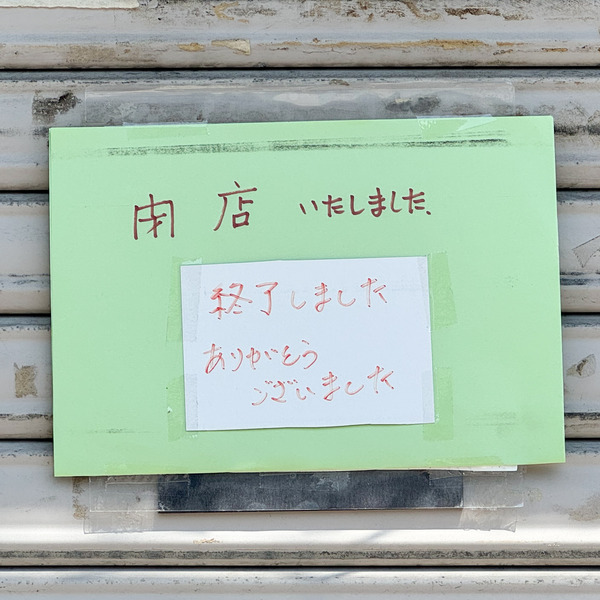 閉店いたしました、
終了しました
ありがとう
ございました